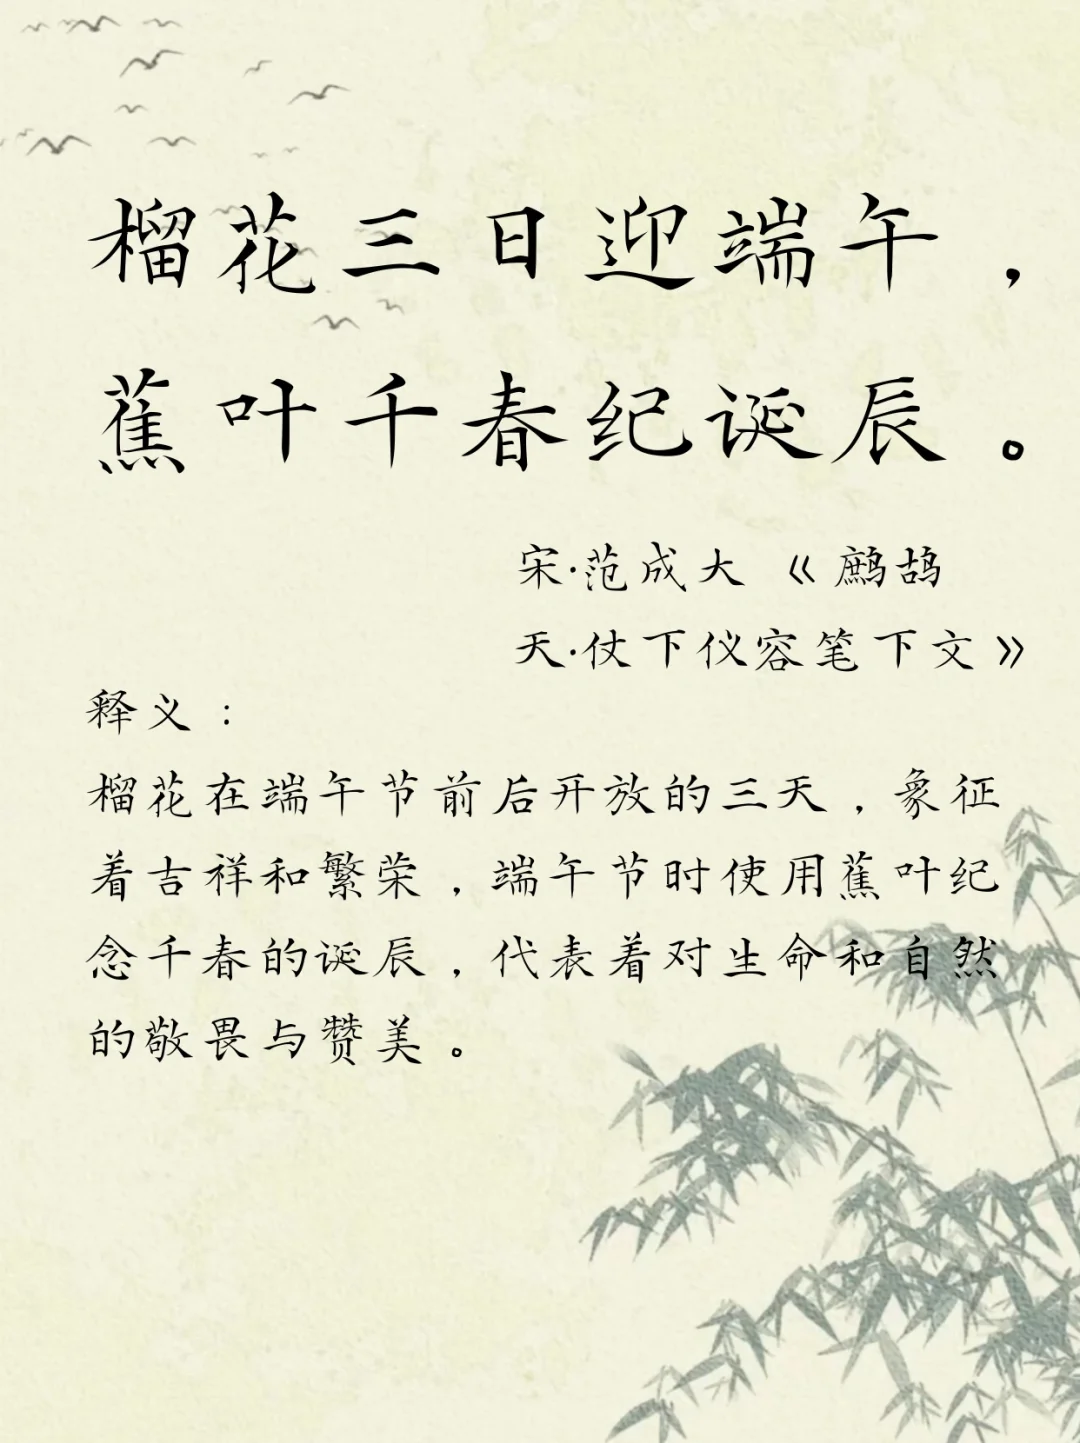 榴花三日迎端午，
蕉叶千春纪诞辰。
宋·范成大《鹧鸪
天·仗下仪容笔下文》
释义：
榴花在端午节前后开放的三天，象征
着吉祥和繁荣，端午节时使用蕉叶纪
念千春的诞辰，代表着对生命和自然
的敬畏与赞美。